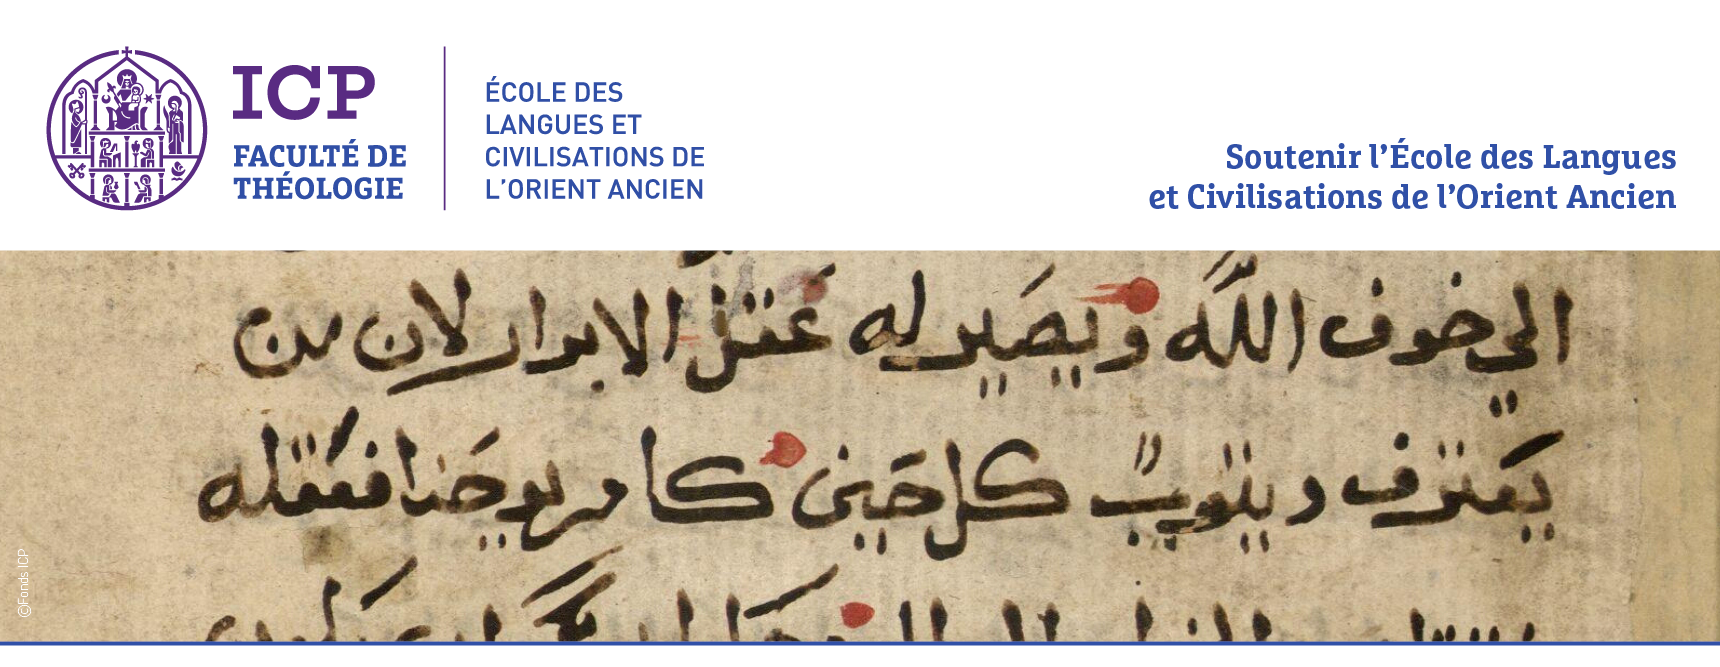 ICP
FACULTÉ DE
THÉOLOGIE
ÉCOLE DES
LANGUES ET
CIVILISATIONS DE
L’ORIENT ANCIEN
Soutenir l’École des Langues
et Civilisations de l’Orient Ancien
الي خوف اللّه ويصير له عقل الابرار لان من
يعترف ويتوب كل حين كا مر يوحنا فم
©Fonds ICP